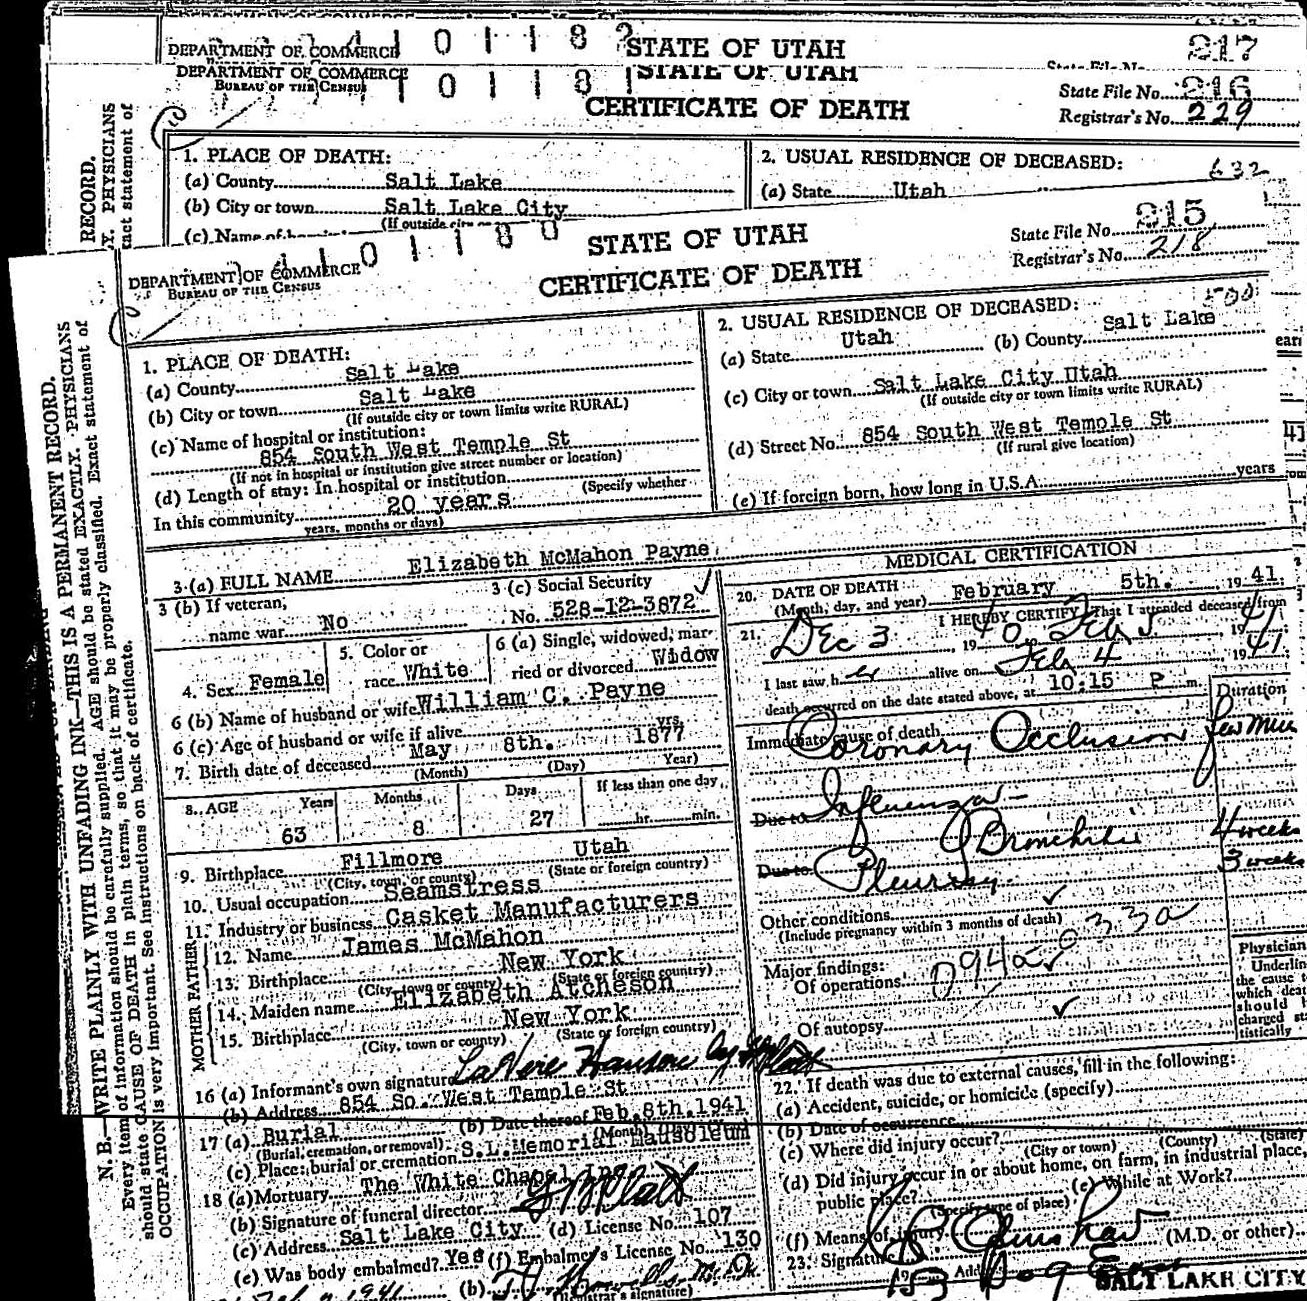 DEPARTMENT OF COMMERCE
4 1 0 1 1 8 2
STATE OF UTAH
217
DEPARTMENT OF COMMERCE
BUREAU OF THE CENSUS
1 0 1 1 8 1
STATE OF UTAH
CERTIFICATE OF DEATH
State File No. 216
Registrar's No. 229
1. PLACE OF DEATH:
(a) County Salt Lake
(b) City or town Salt Lake City
(If outside city or
2. USUAL RESIDENCE OF DECEASED:
632
(a) State Utah
DEPARTMENT OF COMMERCE
BUREAU OF THE CENSUS
4 1 0 1 1 8 0
STATE OF UTAH
CERTIFICATE OF DEATH
State File No. 215
Registrar's No. 218
N. B.—WRITE PLAINLY WITH UNFADING INK—THIS IS A PERMANENT RECORD.
Every item of information should be carefully supplied. AGE should be stated EXACTLY. PHYSICIANS
should state CAUSE OF DEATH in plain terms, so that it may be properly classified. Exact statement of
OCCUPATION is very important. See instructions on back of certificate.
1. PLACE OF DEATH:
(a) County Salt Lake
(b) City or town Salt Lake
(If outside city or town limits write RURAL)
(c) Name of hospital or institution:
854 South West Temple St
(If not in hospital or institution give street number or location)
(d) Length of stay: In hospital or institution
(Specify whether
In this community 20 years
years, months or days)
2. USUAL RESIDENCE OF DECEASED:
500
(a) State Utah (b) County Salt Lake
(c) City or town Salt Lake City Utah
(If outside city or town limits write RURAL)
(d) Street No. 854 South West Temple St
(If rural give location)
(e) If foreign born, how long in U.S.A. years
3 (a) FULL NAME Elizabeth McMahon Payne
3 (b) If veteran,
name war No
3 (c) Social Security
No. 528-12-3872
4. Sex Female
5. Color or
race White
6 (a) Single, widowed, mar-
ried or divorced Widow
6 (b) Name of husband or wife William C. Payne
6 (c) Age of husband or wife if alive yrs.
7. Birth date of deceased May 8th. 1877
(Month) (Day) Year)
8. AGE Years Months Days If less than one day
63 8 27 hr. min.
9. Birthplace Fillmore Utah
(City, town, or county) (State or foreign country)
10. Usual occupation Seamstress
11. Industry or business Casket Manufacturers
FATHER
12. Name James McMahon
13. Birthplace New York
(City, town or county) (State or foreign country)
MOTHER
14. Maiden name Elizabeth Atcheson
15. Birthplace New York
(City, town or county) (State or foreign country)
16 (a) Informant's own signature LaVere Hanson by
(b) Address 854 So. West Temple St
17 (a) Burial (b) Date thereof Feb. 8th. 1941
(Burial, cremation, or removal) (Month)
(c) Place: burial or cremation S.L. Memorial Mausoleum
18 (a) Mortuary The White Chapel Inc.
(b) Signature of funeral director
(c) Address Salt Lake City (d) License No. 107
(e) Was body embalmed? Yes (f) Embalmer's License No. 130
1941 (b)
(Registrar's signature)
MEDICAL CERTIFICATION
20. DATE OF DEATH February 5th. 1941
(Month, day, and year)
21. I HEREBY CERTIFY That I attended deceased from
Dec 3 1940, Feb 5 1941
I last saw her alive on Feb 4 1941
death occurred on the date stated above, at 10:15 P m.
Duration
Immediate cause of death
Coronary Occlusion few min
Due to Influenza
Bronchitis 4 weeks
Due to Pleurisy 3 weeks
Other conditions
(Include pregnancy within 3 months of death) 33a
Major findings:
Of operations 094a
Of autopsy
Physician
Underlin
the cause
which deat
should
charged sta
tistically
22. If death was due to external causes, fill in the following:
(a) Accident, suicide, or homicide (specify)
(b) Date of occurrence
(c) Where did injury occur?
(City or town) (County) (State)
(d) Did injury occur in or about home, on farm, in industrial place,
public place? (e) While at Work?
(Specify type of place)
(f) Means of injury
23. Signature (M.D. or other)
SALT LAKE CITY